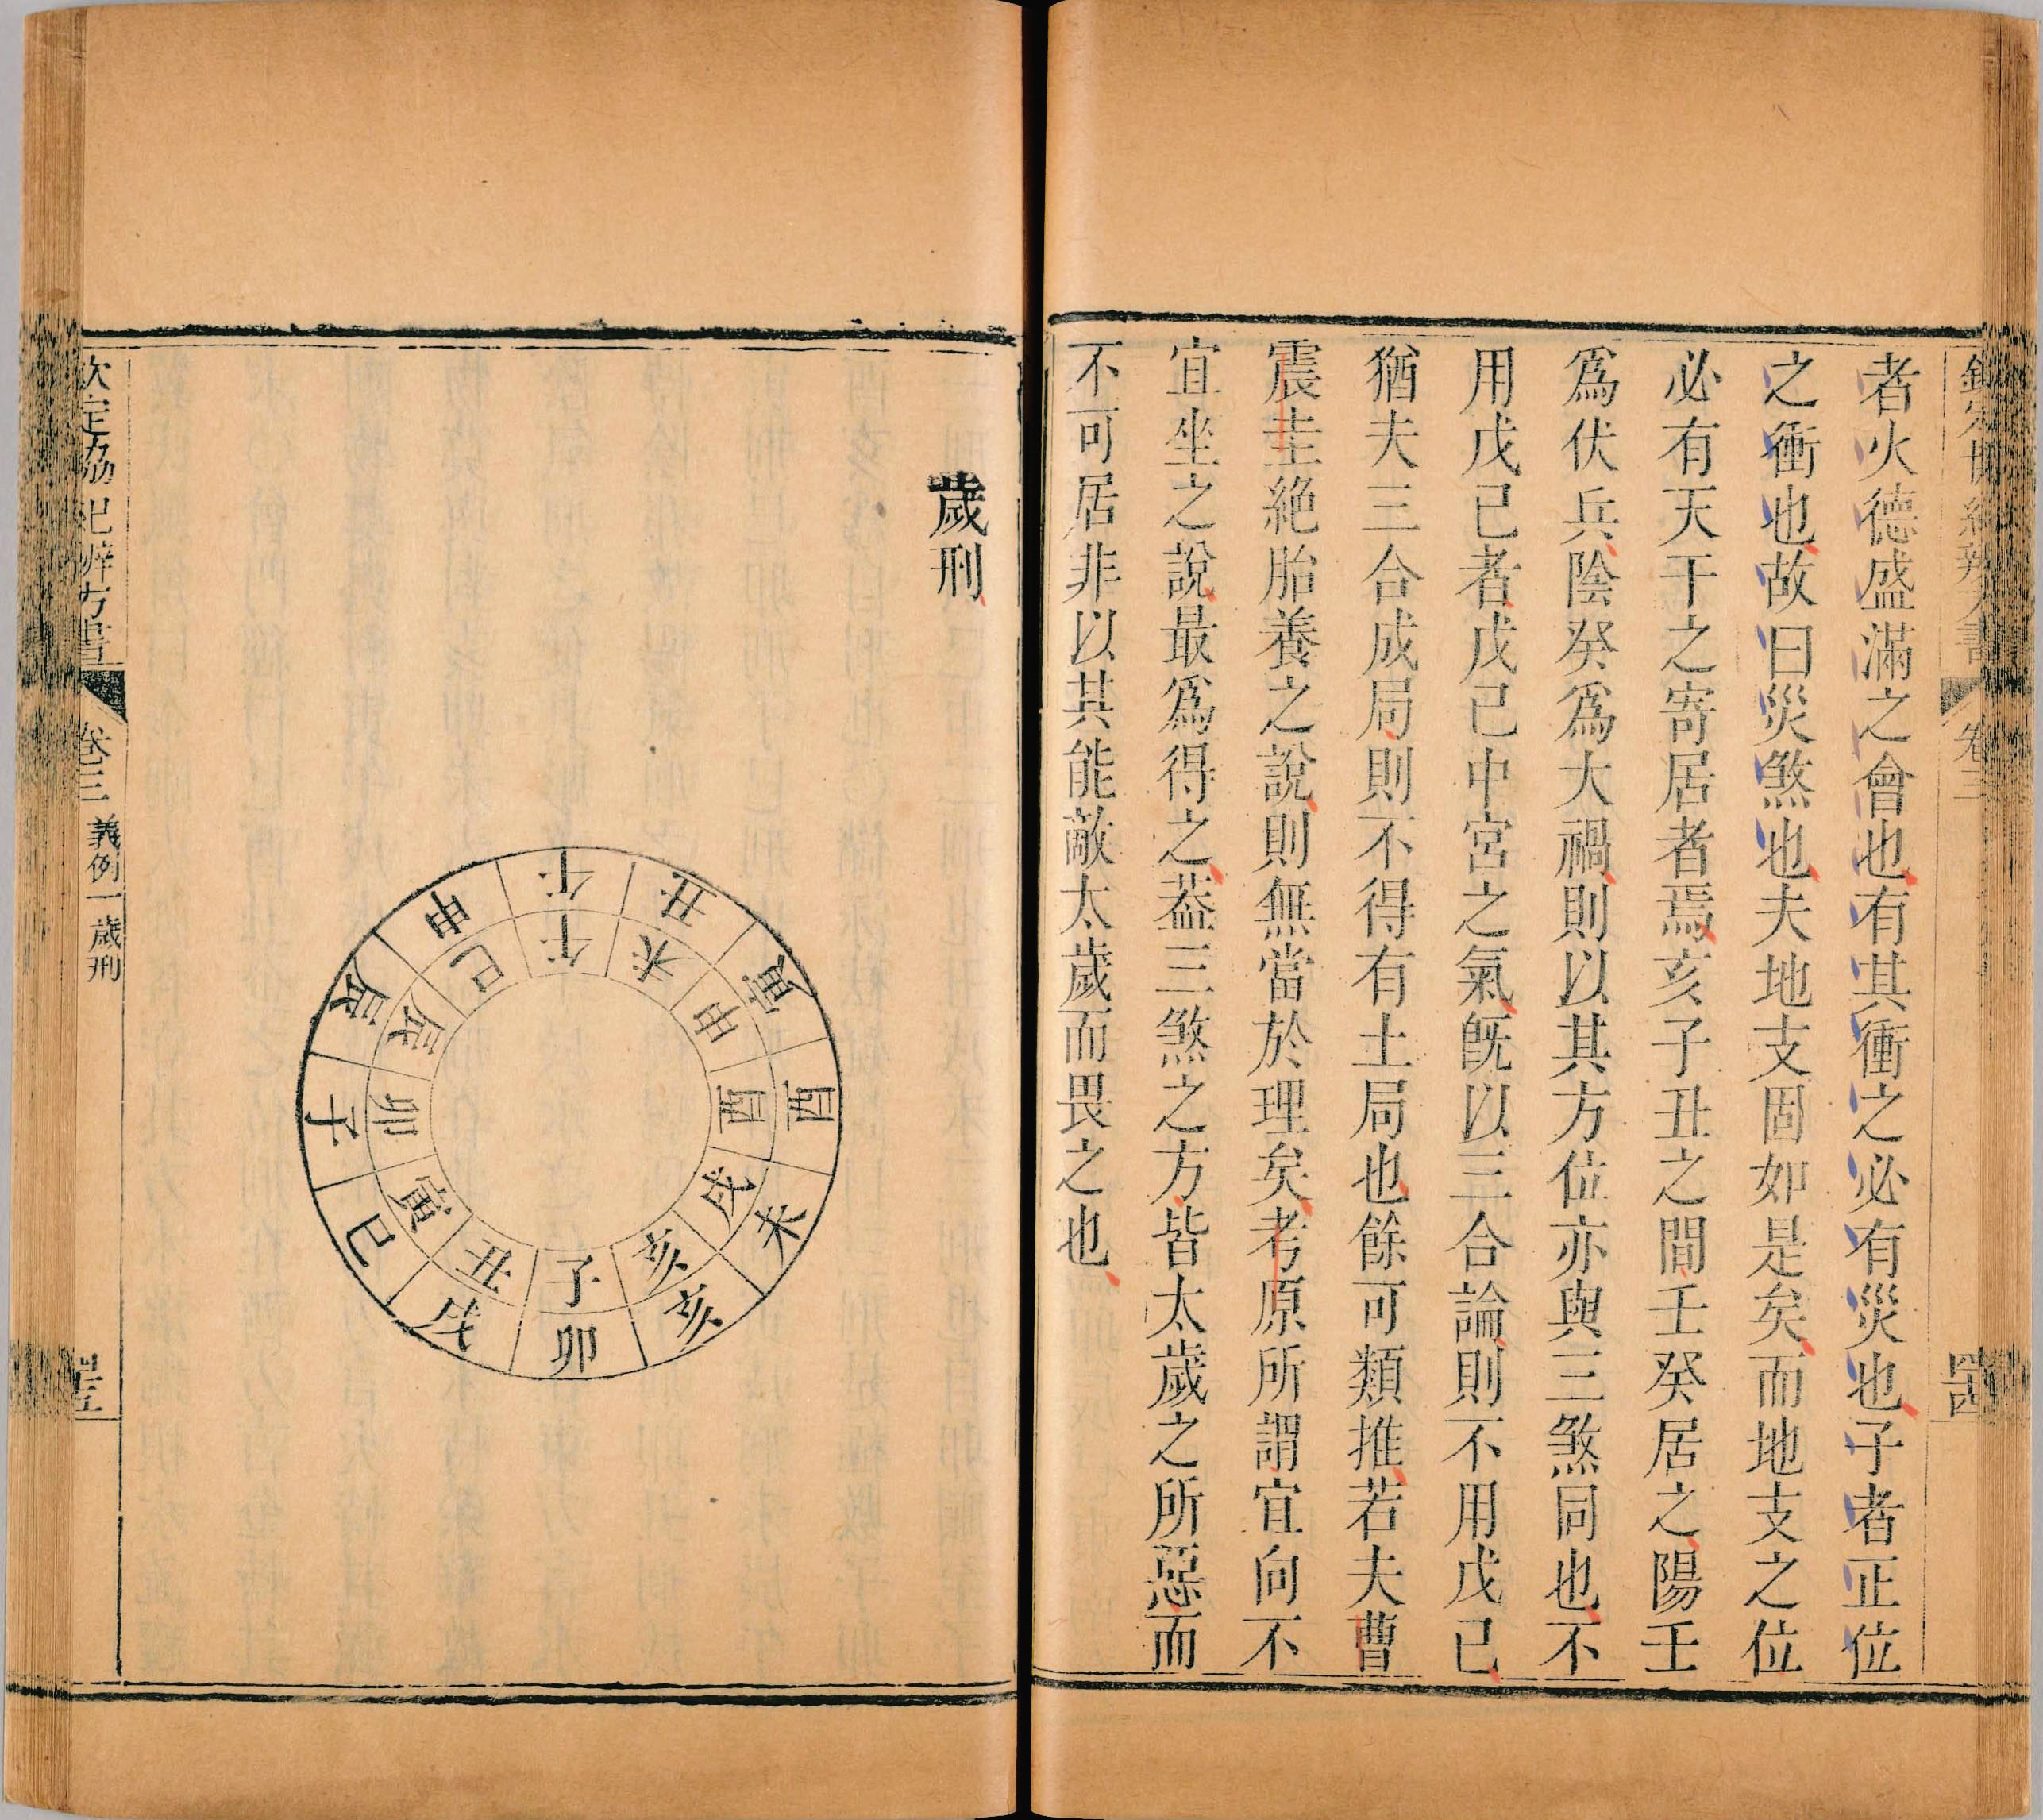 欽定協紀辨方書
卷三
四十四
者火德盛滿之會也有其衝之必有災也子者正位
之衝也故曰災煞也夫地支固如是矣而地支之位
必有天干之寄居者焉亥子丑之間壬癸居之陽壬
爲伏兵陰癸爲大禍則以其方位亦與三煞同也不
用戊己者戊己中宮之氣旣以三合論則不用戊己
猶夫三合成局則不得有土局也餘可類推若夫曹
震圭絶胎養之說則無當於理矣考原所謂宜向不
宜坐之說最爲得之葢三煞之方皆太歲之所惡而
不可居非以其能敵太歲而畏之也
歲刑
午丑寅酉未亥卯戌巳子辰申
午未申酉戌亥子丑寅卯辰巳
欽定協紀辨方書
卷三 義例一歲刑
四十五